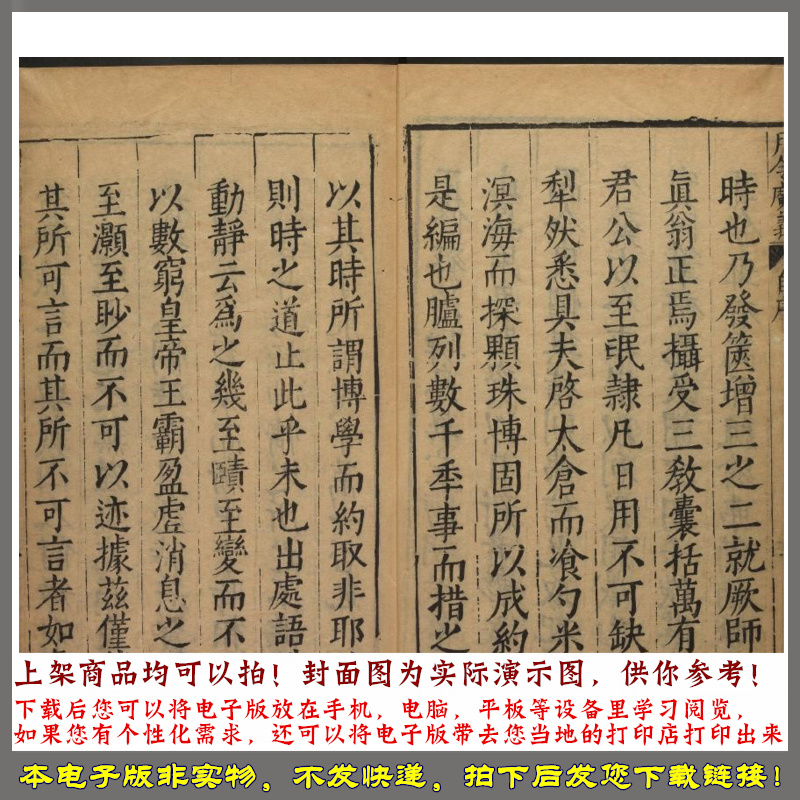 月令廣義
自序
時也乃發篋增三之二就厥師
眞翁正焉攝受三敎囊括萬有
君公以至氓隷凡日用不可缺
犁然悉具夫啓太倉而飡勺米
溟海而探顆珠博固所以成約
是編也臚列數千秊事而措之
以其時所謂博學而約取非耶
則時之道止此乎未也出處語
動靜云爲之幾至賾至變而不
以數窮皇帝王霸盈虗消息之
至灝至眇而不可以迹據茲僅
其所可言而其所不可言者如
上架商品均可以拍！封面图为实际演示图，供你参考！
下载后您可以将电子版放在手机，电脑，平板等设备里学习阅览，
如果您有个性化需求，还可以将电子版带去您当地的打印店打印出来
本电子版非实物，不发快递，拍下后发您下载链接！